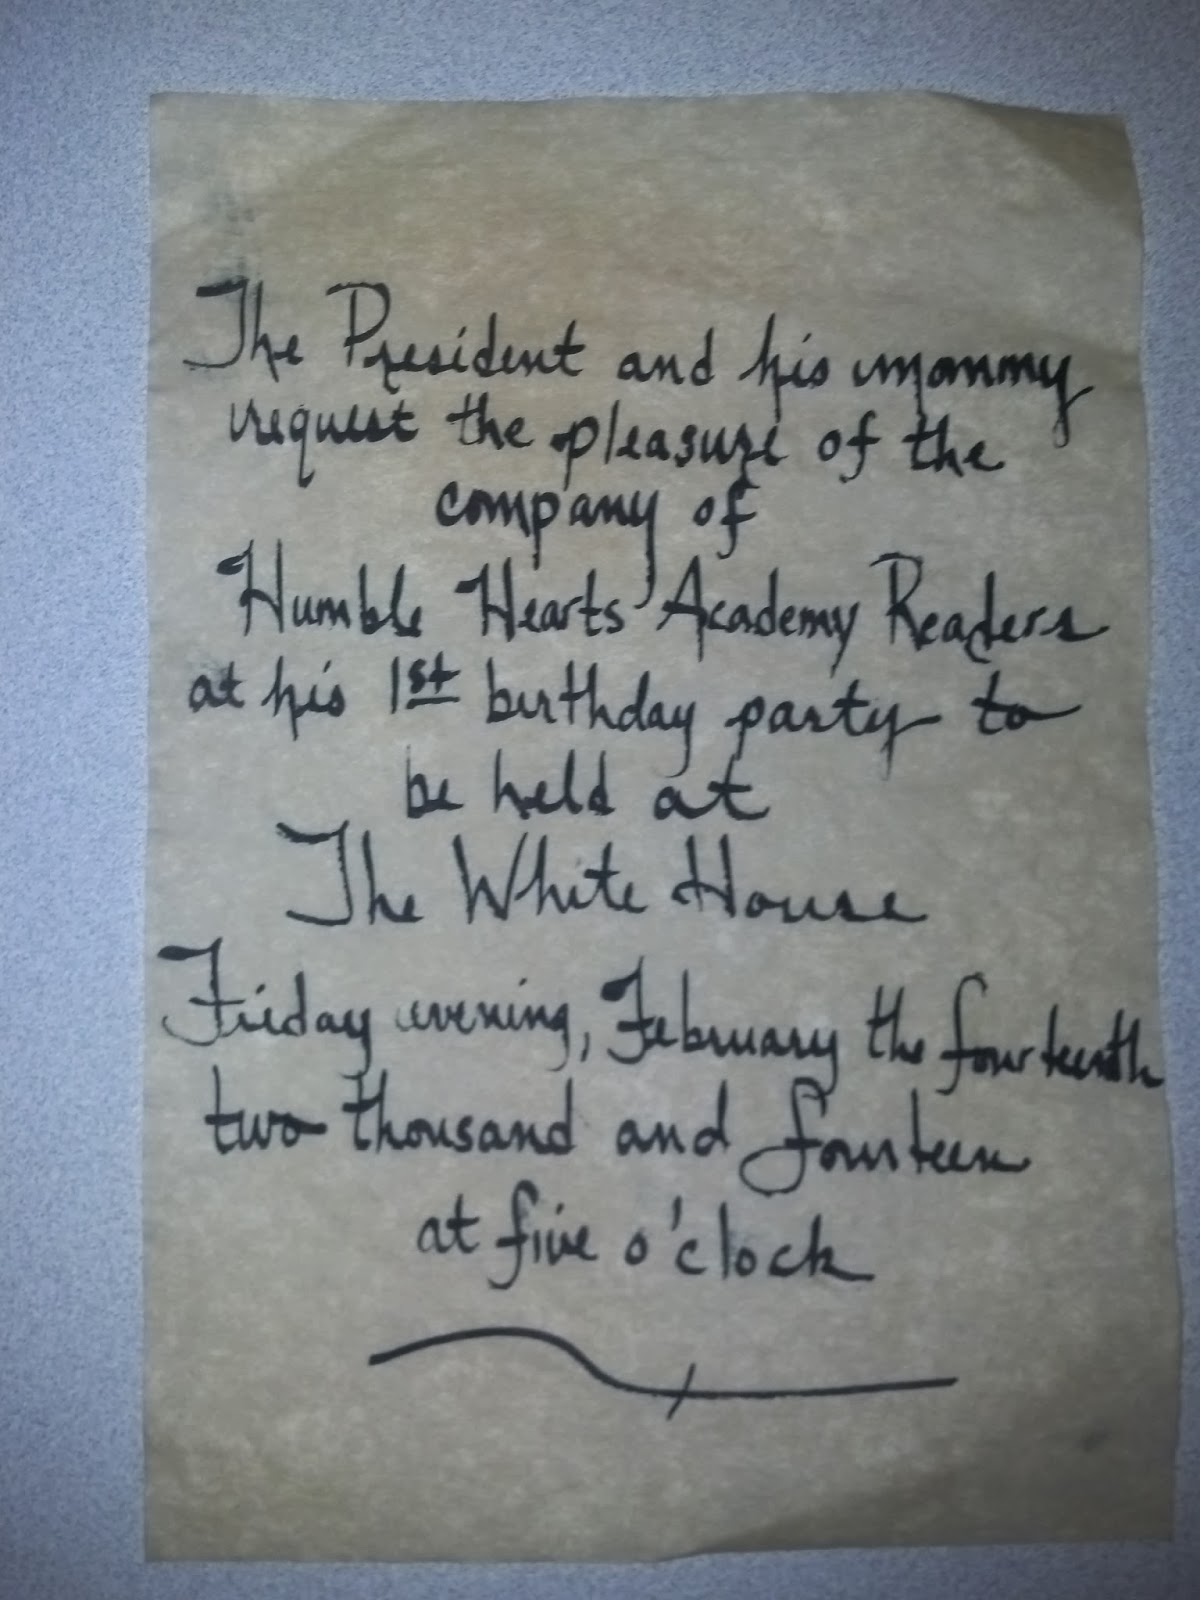 The President and his mommy
request the pleasure of the
company of
Humble Hearts Academy Readers
at his 1st birthday party to
be held at
The White House
Friday evening, February the fourteenth
two thousand and fourteen
at five o'clock